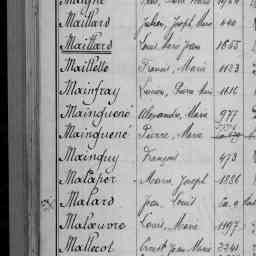 Maillard Julien, Joseph Marie 440
Maillard Louis Marie Jean 1855
Maillette Francis, Marie 1123
Mainfray Marie 1110
Mainguené Alexandre, Marie 977
Mainguené Pierre, Marie
Mainguy François 473
Malaper Marie, Joseph 1886
Malard Jean, Louis
Malœuvre Louis, Marie 1197
Mallecot Ernest Jean Marie 2241